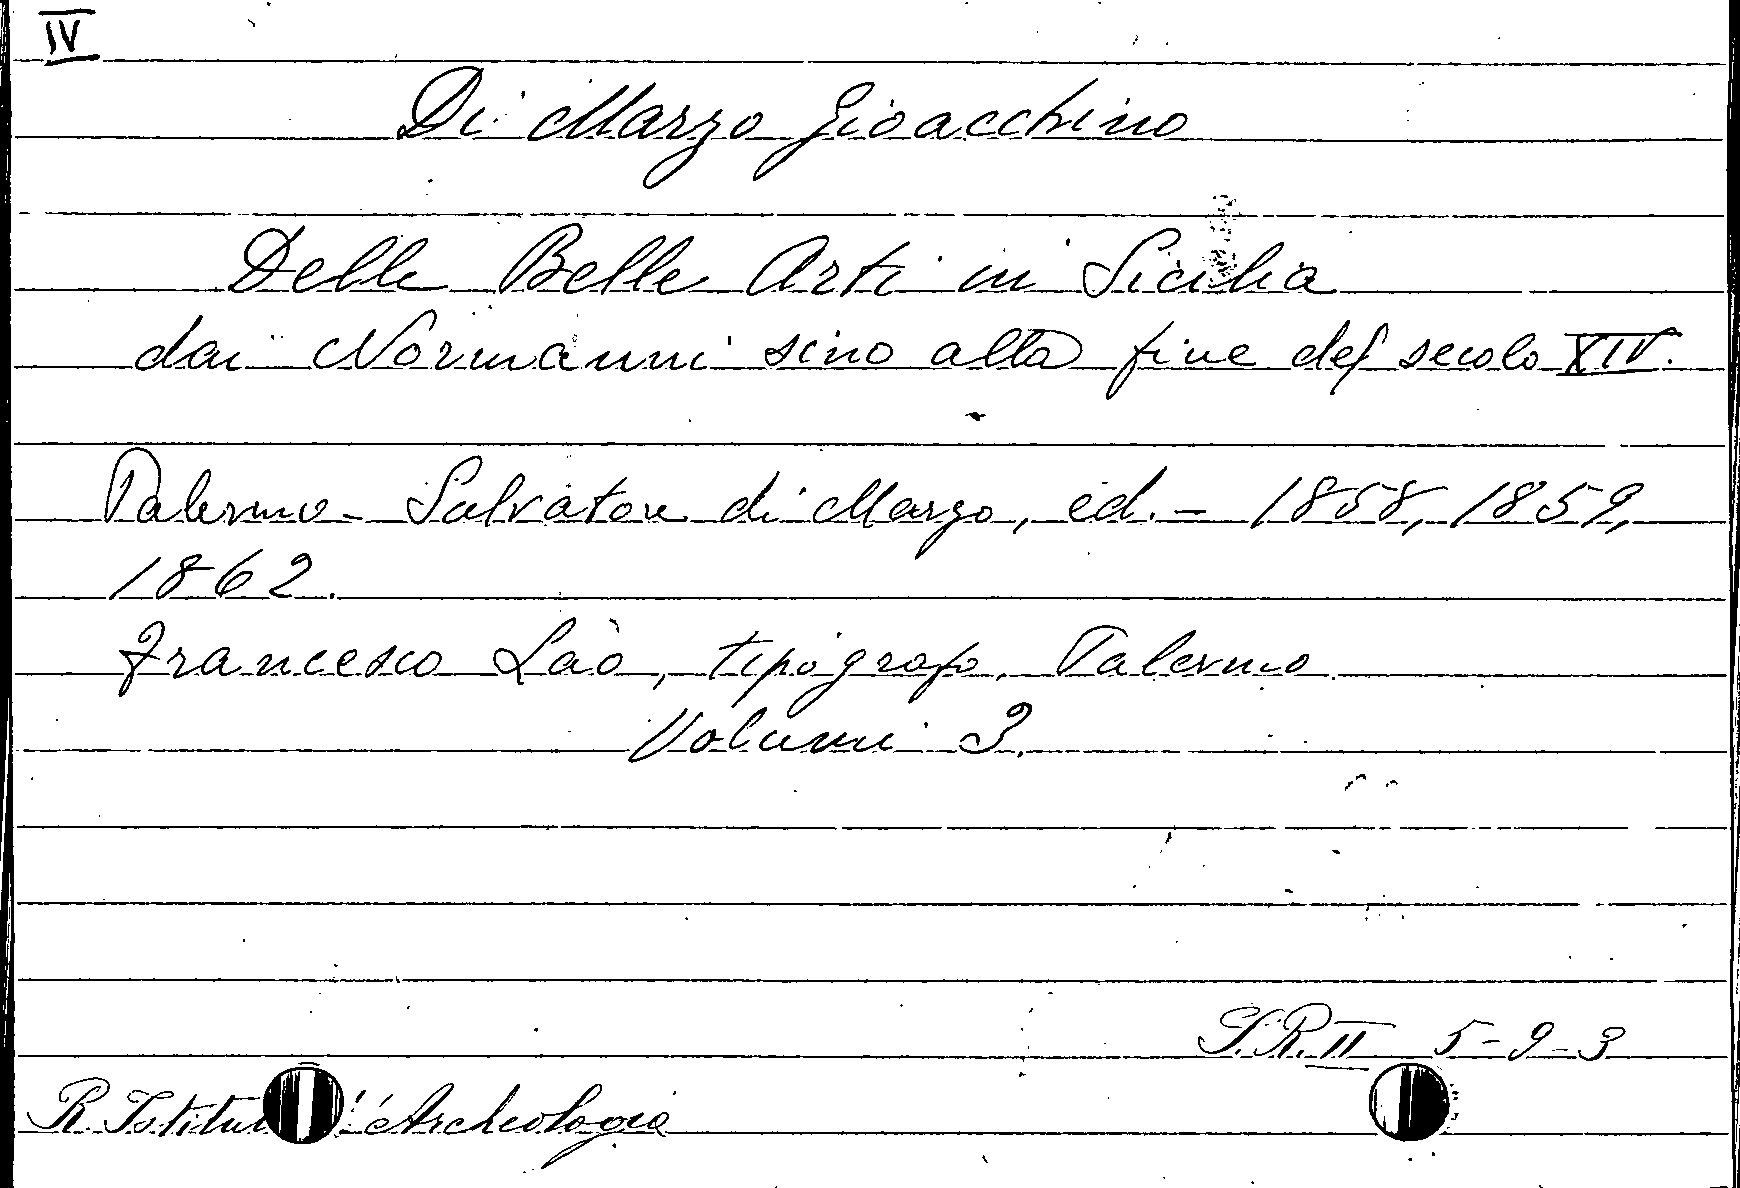 IV
Di Marzo Gioacchino
Delle Belle Arti in Sicilia
dai Normanni sino alla fine del secolo XIV.
Palermo - Salvatore di Marzo, ed. - 1858, 1859,
1862.
Francesco Lào, tipografo, Palermo
Volumi 3.
S.R. II 5-9-3
R. Istitu Archeologia